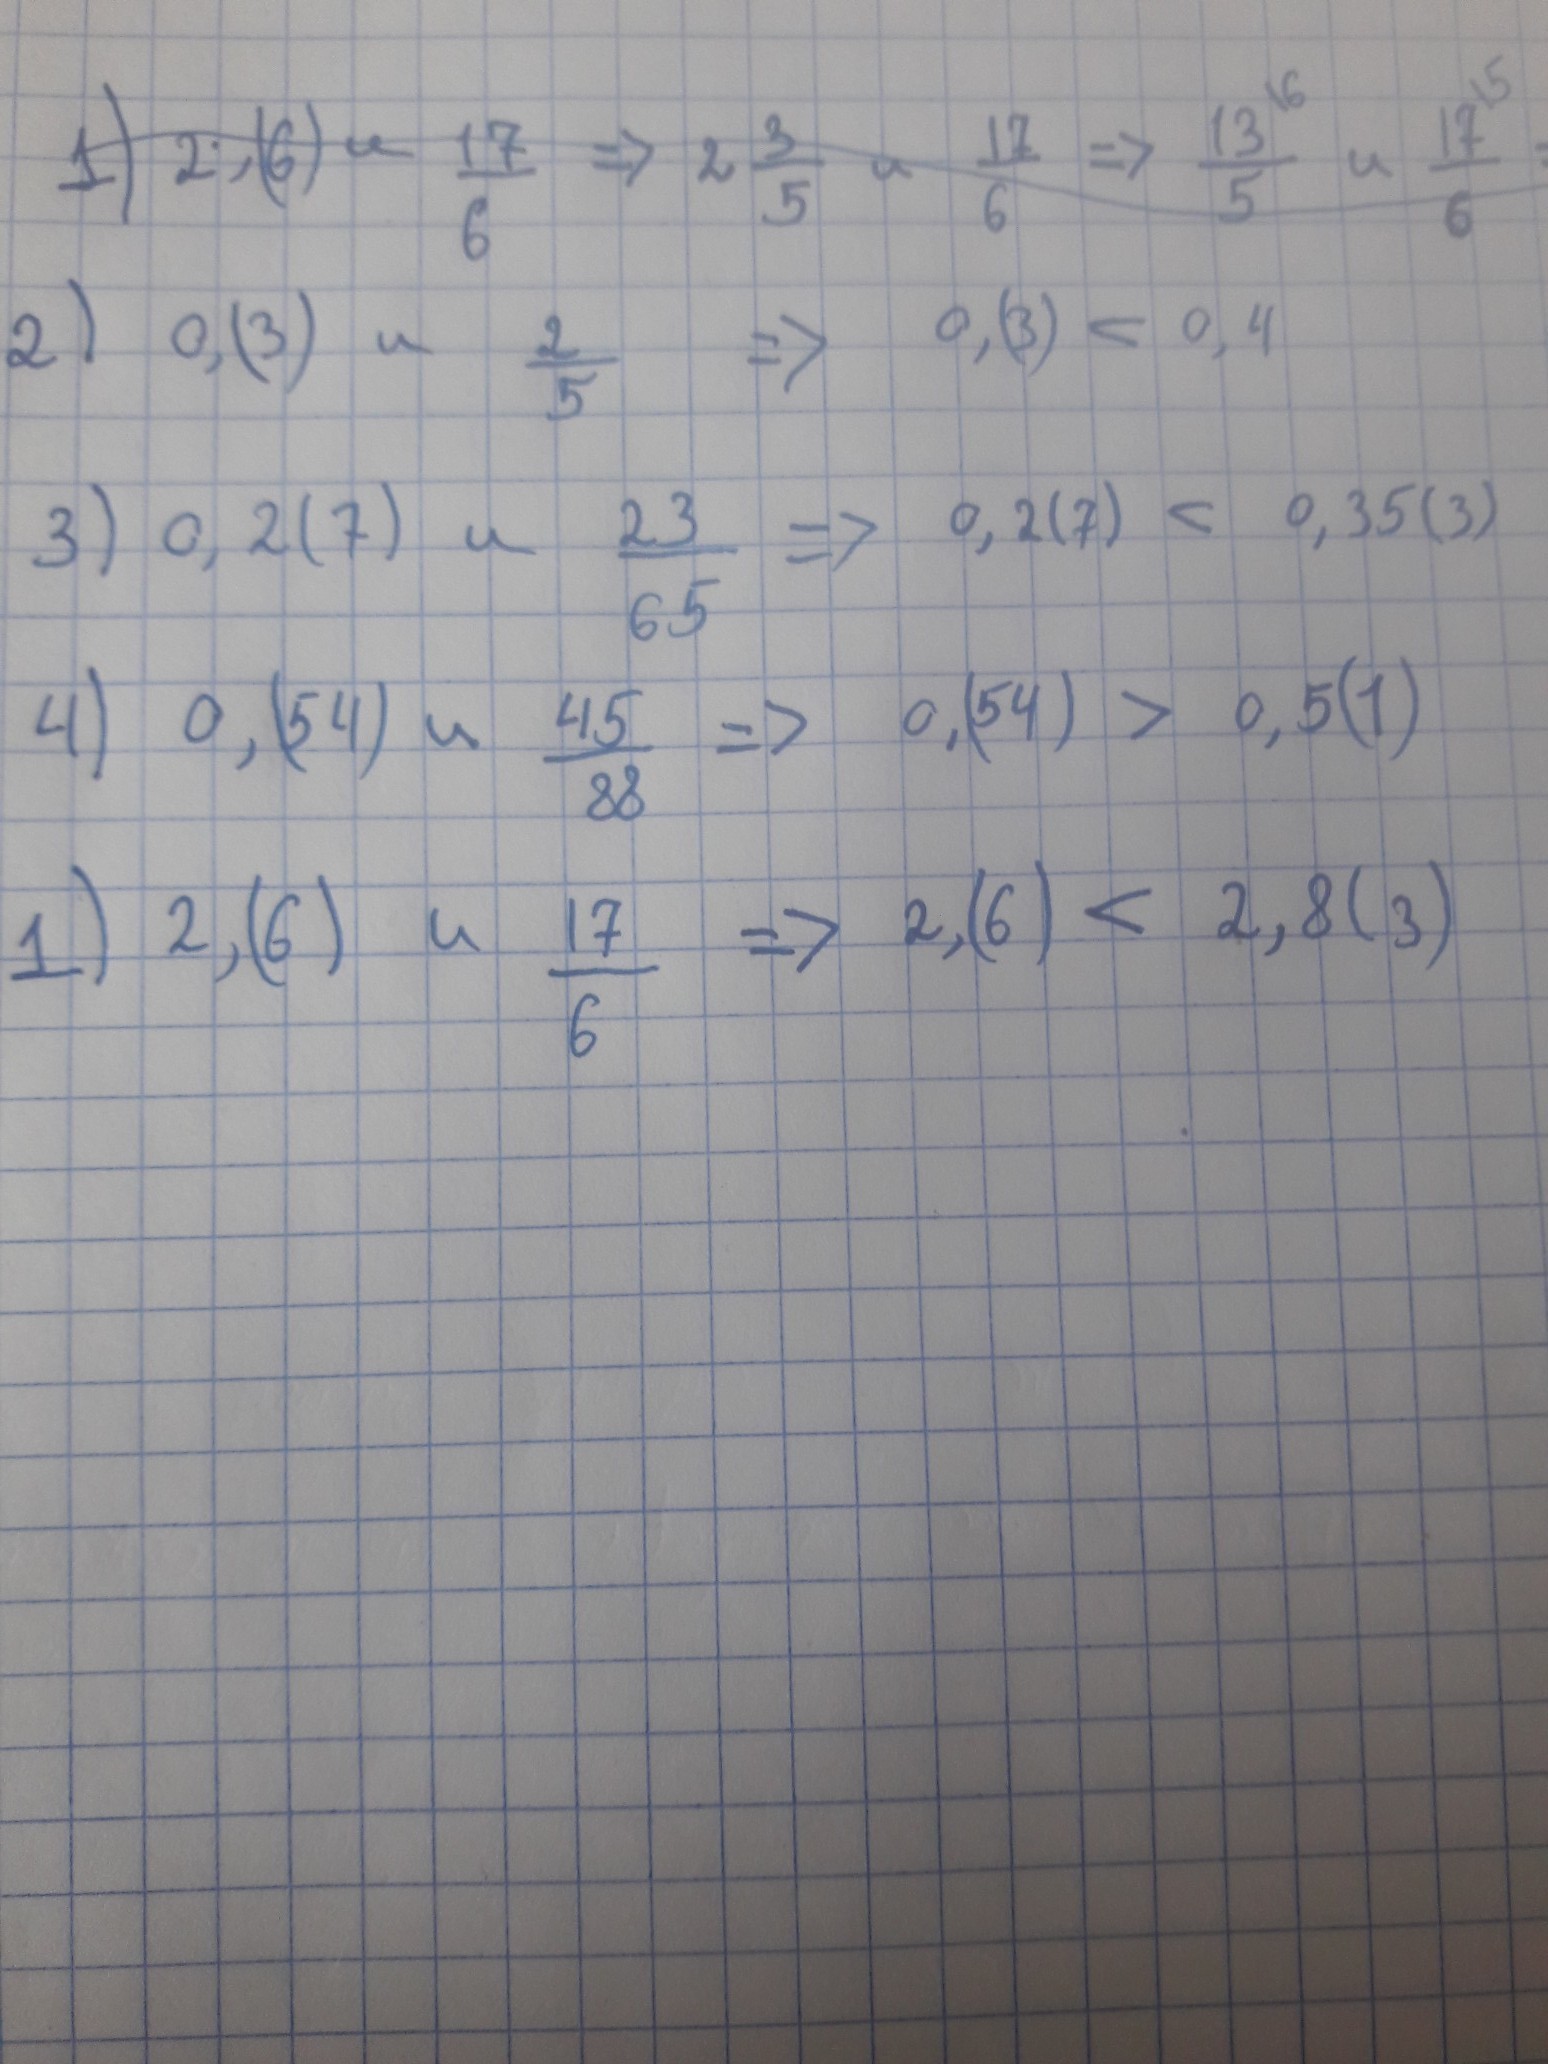 1) 2,(6) и 17/6 => 2 3/5 и 17/6 => 13/5 \6 и 17/6 \5 =
2) 0,(3) и 2/5 => 0,(3) < 0,4
3) 0,2(7) и 23/65 => 0,2(7) < 0,35(3)
4) 0,(54) и 45/88 => 0,(54) > 0,5(1)
1) 2,(6) и 17/6 => 2,(6) < 2,8(3)